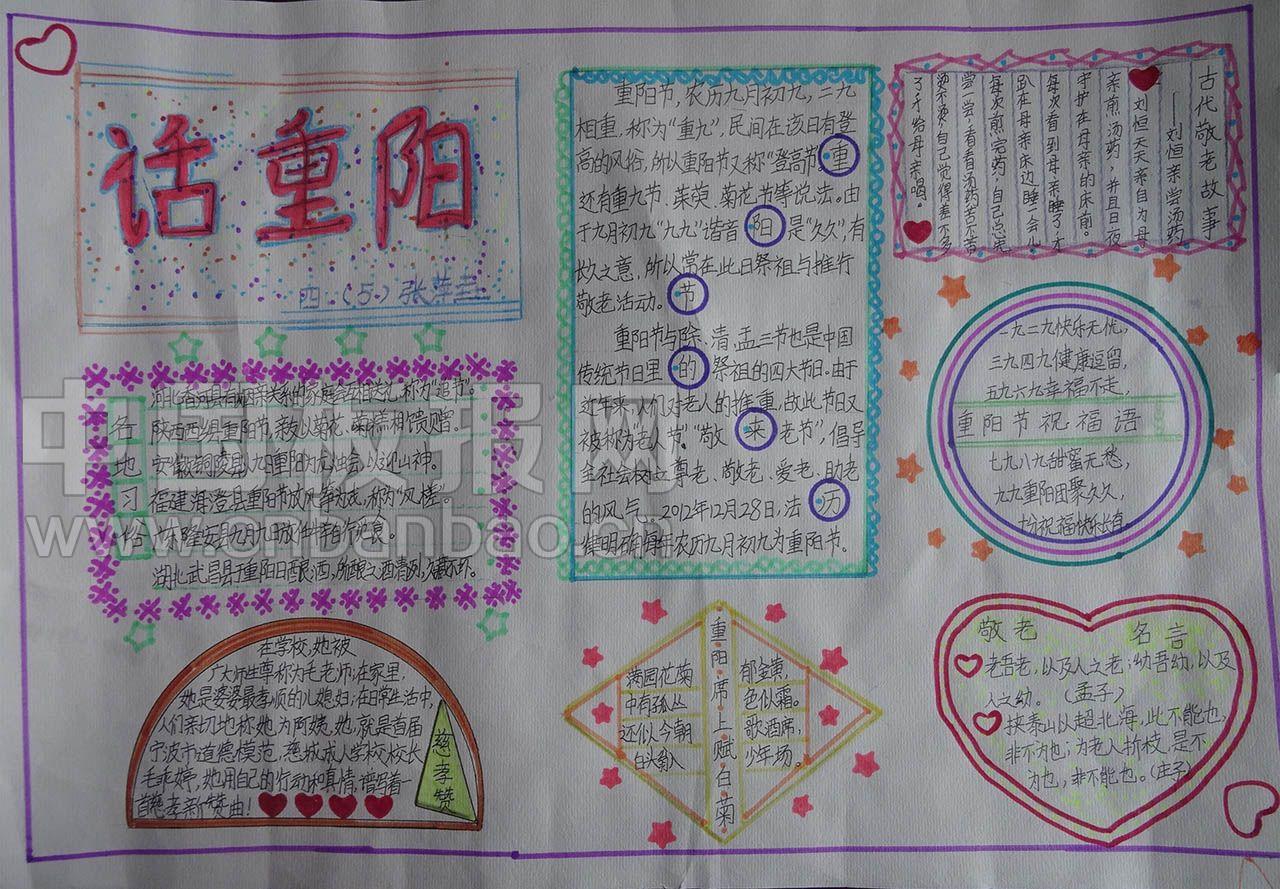 话重阳
四(5)张
重阳节,农历九月初九,二九
相重,称为“重九”,民间在该日有登
高的风俗,所以重阳节又称“登高节”。重
还有重九节、茱萸、菊花节等说法。由
于九月初九“九九”谐音阳是“久久”,有
长久之意,所以常在此日祭祖与推行
敬老活动。节
重阳节与除、清、盂三节也是中国
传统节日里的祭祖的四大节日。由于
近年来,人们对老人的推重,故此节日又
被称为“老人节”。“敬来老节”,倡导
全社会树立尊老、敬老、爱老、助老
的风气。2012年12月28日,法历
律明确每年农历九月初九为重阳节。
古代敬老故事
——刘恒亲尝汤药
刘恒天天亲自为母
亲煎汤药,并且日夜
守护在母亲的床前。
每次看到母亲睡了,才
趴在母亲床边睡一会儿
每次煎完药,自己总先
尝一尝,看看汤药苦不苦
烫不烫,自己觉得差不多
了,才给母亲喝。
各地习俗
湖北
陕西西乡县重阳节,亲友以菊花、菊糕相馈赠。
安徽铜陵县九月重阳为
福建海澄县重阳节放风筝为戏,称为“风槎”。
隆安县九月九日放任
湖北武昌县于重阳日酿酒,所酿之酒清冽,久藏不坏。
一九二九快乐无忧,
三九四九健康逗留,
五九六九幸福不走,
重阳节祝福语
七九八九甜蜜无愁,
九九重阳团聚久久,
十分祝福快乐
在学校,她被
广大师生尊称为毛老师;在家里,
她是婆婆最孝顺的儿媳妇;在日常生活中,
人们亲切地称她为阿姨。她,就是首届
宁波市道德模范,慈城成人学校校长
毛乘婷,她用自己的行动和真情,谱写着一
首慈孝新赞曲!
慈孝赞
重阳席上赋白菊
满园花菊
郁金黄,
中有孤丛
色似霜。
还似今朝
歌酒席,
白头翁入
少年场。
敬老 名言
老吾老,以及人之老;幼吾幼,以及
人之幼。(孟子)
挟泰山以超北海,此不能也,
非不为也;为老人折枝,是不
为也,非不能也。(庄子)
中国板报网
www.cnbanbao.cn